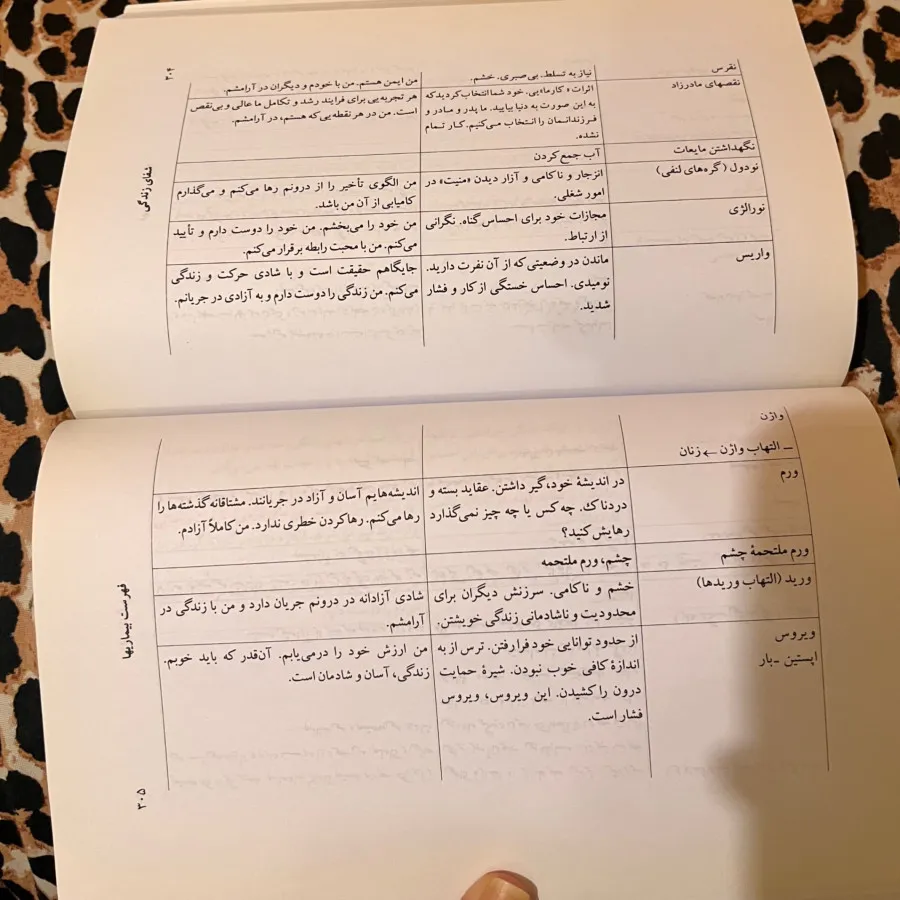 ۳۰۴
شفای زندگی
نقرس
نیاز به تسلط. بی‌صبری. خشم.
من ایمن هستم. من با خودم و دیگران در آرامشم.
نقصهای مادرزاد
اثرات «کارما»یی. خود شما انتخاب کردید که
به این صورت به دنیا بیایید. ما پدر و مادر و
فرزندانمان را انتخاب می‌کنیم. کار تمام
نشده.
هر تجربه‌یی برای فرایند رشد و تکامل ما عالی و بی‌نقص
است. من در هر نقطه‌یی که هستم، در آرامشم.
نگهداشتن مایعات
آب جمع کردن
نودول (گره‌های لنفی)
انزجار و ناکامی و آزار دیدن «منیت» در
امور شغلی.
من الگوی تأخیر را از درونم رها می‌کنم و می‌گذارم
کامیابی از آن من باشد.
نورالژی
مجازات خود برای احساس گناه. نگرانی
از ارتباط.
من خود را می‌بخشم. من خود را دوست دارم و تأیید
می‌کنم. من با محبت رابطه برقرار می‌کنم.
واریس
ماندن در وضعیتی که از آن نفرت دارید.
نومیدی. احساس خستگی از کار و فشار
شدید.
جایگاهم حقیقت است و با شادی حرکت و زندگی
می‌کنم. من زندگی را دوست دارم و به آزادی در جریانم.
واژن
ــ التهاب واژن ← زنان
ورم
در اندیشهٔ خود، گیر داشتن. عقاید بسته و
دردناک. چه کس یا چه چیز نمی‌گذارد
رهایش کنید؟
اندیشه‌هایم آسان و آزاد در جریانند. مشتاقانه گذشته‌ها را
رها می‌کنم. رها کردن خطری ندارد. من کاملاً آزادم.
ورم ملتحمهٔ چشم
چشم، ورم ملتحمه
ورید (التهاب وریدها)
خشم و ناکامی. سرزنش دیگران برای
محدودیت و ناشادمانی زندگی خویشتن.
شادی آزادانه در درونم جریان دارد و من با زندگی در
آرامشم.
ویروس
اپستین ـ بار
از حدود توانایی خود فرا رفتن. ترس از به
اندازهٔ کافی خوب نبودن. شیرهٔ حمایت
درون را کشیدن. این ویروس، ویروس
فشار است.
من ارزش خود را درمی‌یابم. آن‌قدر که باید خوبم.
زندگی، آسان و شادمان است.
فهرست بیماریها
۳۰۵